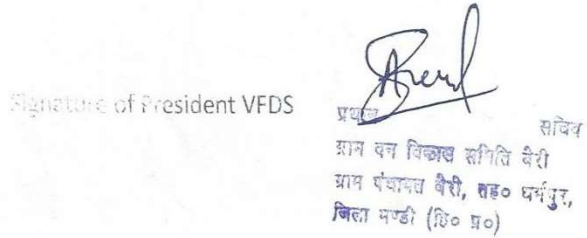 Signature of President VFDS
प्रधान सचिव
ग्राम वन विकास समिति बैरी
ग्राम पंचायत बैरी, तह० धर्मपुर,
जिला मण्डी (हि० प्र०)